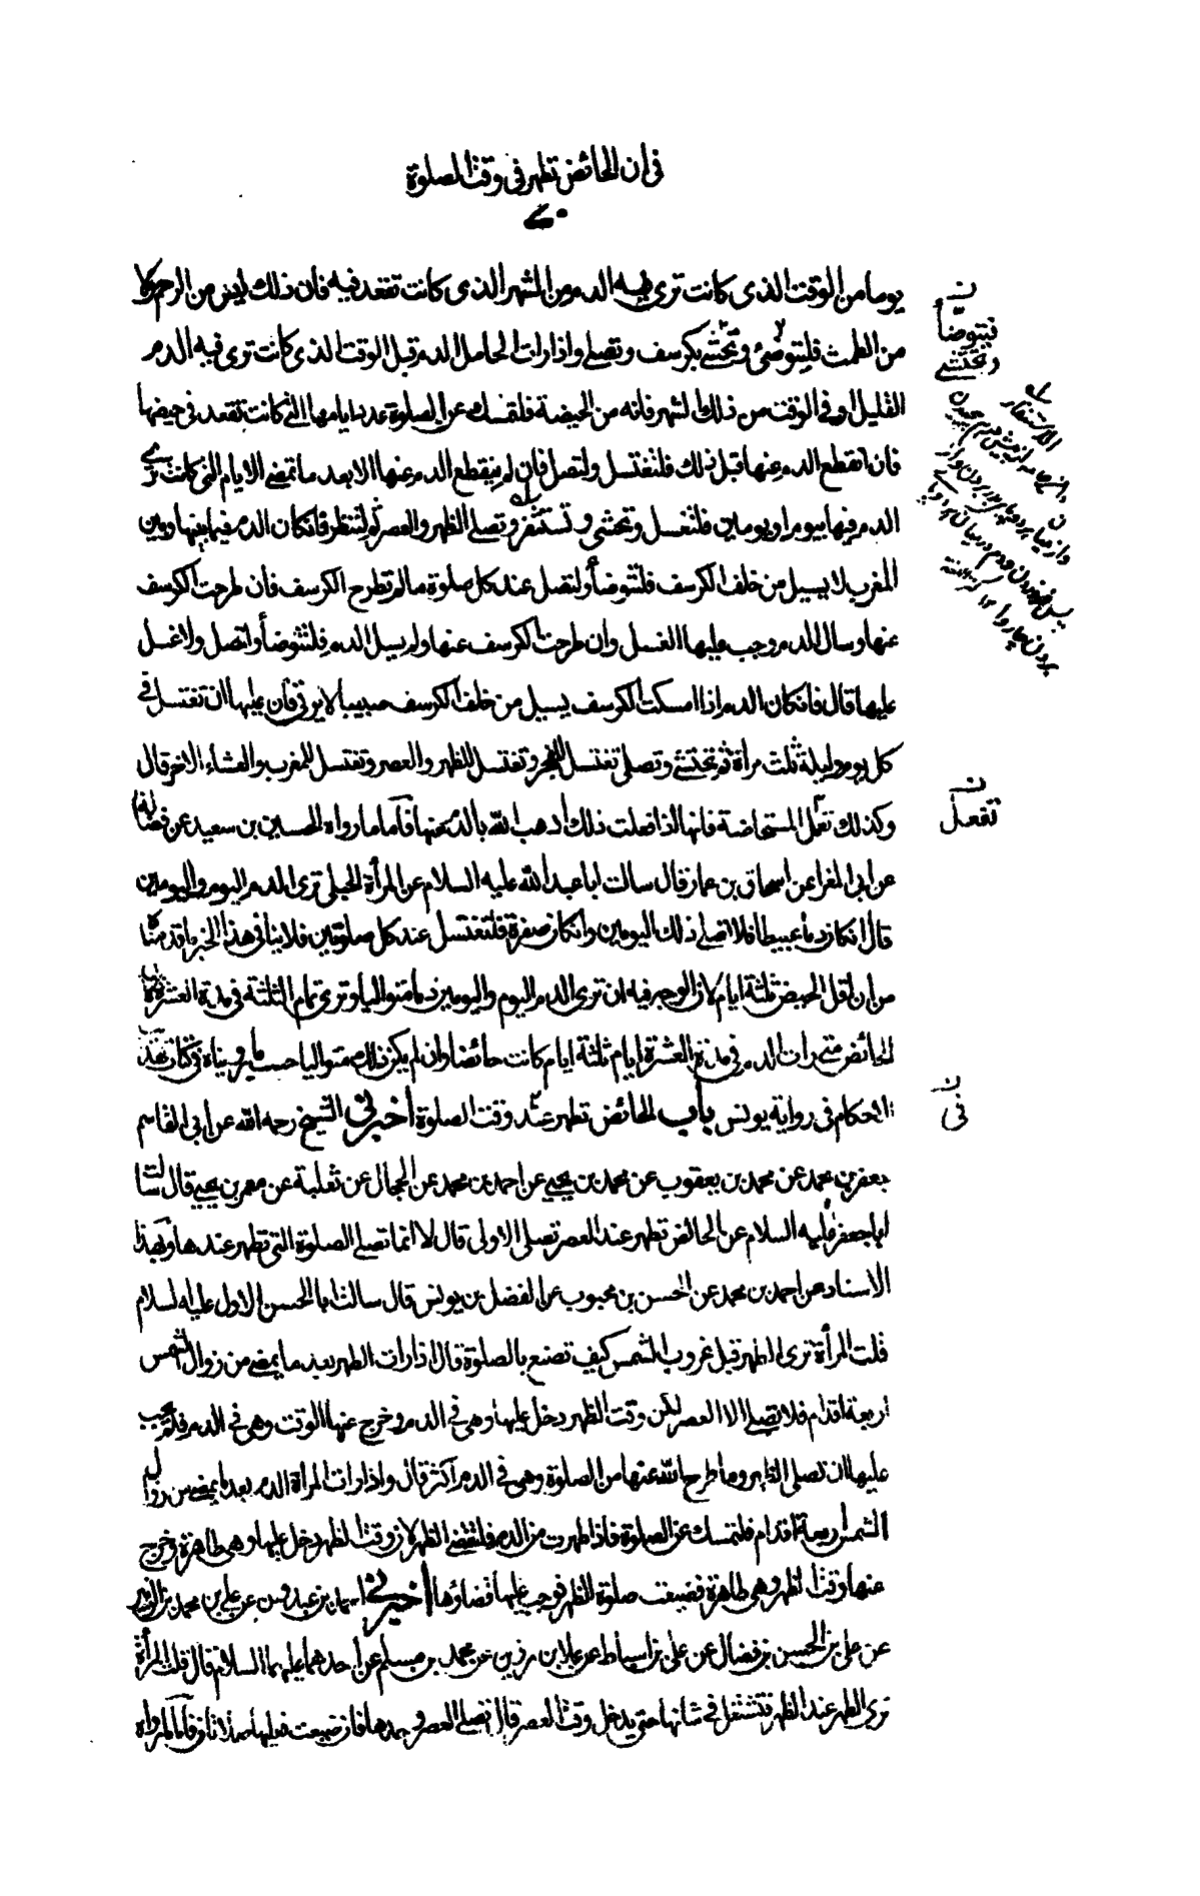 في ان الحائض تطهر في وقت الصلوة
٧٠
يوما من الوقت الذى كانت ترى فيه الدم من الشهر الذى كانت تقعد فيه فان ذلك ليس من الرحم ولا
من الطمث فليتوضئ وتحتشى بكرسف وتصلى واذا رات الحامل الدم قبل الوقت الذى كانت ترى فيه الدم
القليل او فى الوقت من ذلك الشهر فانه من الحيضة فلتمسك عن الصلوة عدد ايامها التى كانت تقعد فى حيضها
فان انقطع الدم عنها قبل ذلك فلتغتسل ولتصل فان لم ينقطع الدم عنها الا بعد ما تمضى الايام التى كانت ترى
الدم فيها بيوم او يومين فلتغسل وتحتشى وتستثفر وتصلى الظهر والعصر ثم لتنظر فان كان الدم فيما بينها وبين
المغرب لا يسيل من خلف الكرسف فلتتوضأ ولتصل عند كل صلوة ما لم تطرح الكرسف فان طرحت الكرسف
عنها وسال الدم وجب عليها الغسل وان طرحت الكرسف عنها ولم يسيل الدم فلتتوضأ ولتصل ولا غسل
عليها قال فان كان الدم اذا امسكت الكرسف يسيل من خلف الكرسف صبيبا لا يرقى فان عليها ان تغتسل فى
كل يوم وليلة ثلث مراة ثم تحتشى وتصلى تغتسل للفجر وتغتسل للظهر والعصر وتغتسل للمغرب والعشاء الاخر قال
وكذلك تفعل المستحاضة فانها اذا فعلت ذلك اذهب الله بالدم عنها فاما ما رواه الحسين بن سعيد عن فضالة
عن ابى المغرا عن اسحاق بن عمار قال سالت ابا عبد الله عليه السلام عن المرأة الحبلى ترى الدم اليوم واليومين
قال ان كان دما عبيطا فلا تصلى ذلك اليومين وان كان صفرة فلتغتسل عند كل صلوتين فلا ينافى هذا الخبر ما قدمناه
من ان اقل الحيض ثلثة ايام لان الوجه فيه ان ترى الدم اليوم واليومين دما متواليا وترى تمام الثلثة فى مدة العشرة لان
الحائض متى رات الدم فى مدة العشرة ايام ثلثة ايام كانت حائضا وان لم يكن ذلك متواليا حسب ما رويناه
الاحكام فى رواية يونس باب الحائض تطهر عند وقت الصلوة أخبرنى الشيخ رحمه الله عن ابى القاسم
جعفر بن محمد عن محمد بن يعقوب عن محمد بن يحيى عن احمد بن محمد عن الحجال عن ثعلبة عن معمر بن يحيى قال سالت
ابا جعفر عليه السلام عن الحائض تطهر عند العصر تصلى الاولى قال لا انما تصلى الصلوة التى تطهر عندها وبهذا
الاسناد عن احمد بن محمد عن الحسن بن محبوب عن الفضل بن يونس قال سالت ابا الحسن الاول عليه السلام
قلت المرأة ترى الطهر قبل غروب الشمس كيف تصنع بالصلوة قال اذا رات الطهر بعد ما يمضى من زوال الشمس
اربعة اقدام فلا تصلى الا العصر لان وقت الظهر دخل عليها وهى فى الدم وخرج عنها الوقت وهى فى الدم فلم يجب
عليها ان تصلى الظهر وما طرح الله عنها من الصلوة وهى فى الدم اكثر قال واذا رات المراة الدم بعد ما يمضى من زوال
الشمس اربعة اقدام فلتمسك عن الصلوة فاذا طهرت من الدم فلتقض الظهر لان وقت الظهر دخل عليها وهى طاهرة وخرج
عنها وقت الظهر وهى طاهرة فضيعت صلوة الظهر فوجب عليها قضاؤها أخبرنى احمد بن عبدون عن على بن محمد بن الزبير
عن على بن الحسن بن فضال عن على بن اسباط عن علا بن رزين عن محمد بن مسلم عن احدهما عليهما السلام قال قلت المرأة
ترى الطهر عند الظهر فتشتغل فى شانها حتى يدخل وقت العصر قال تصلى العصر وحدها فان ضيعت فعليها صلاتان فاما ما رواه
ن
فتتوضأ
وتحتشى
الاستثفار
ن
تفعل
ن
فى